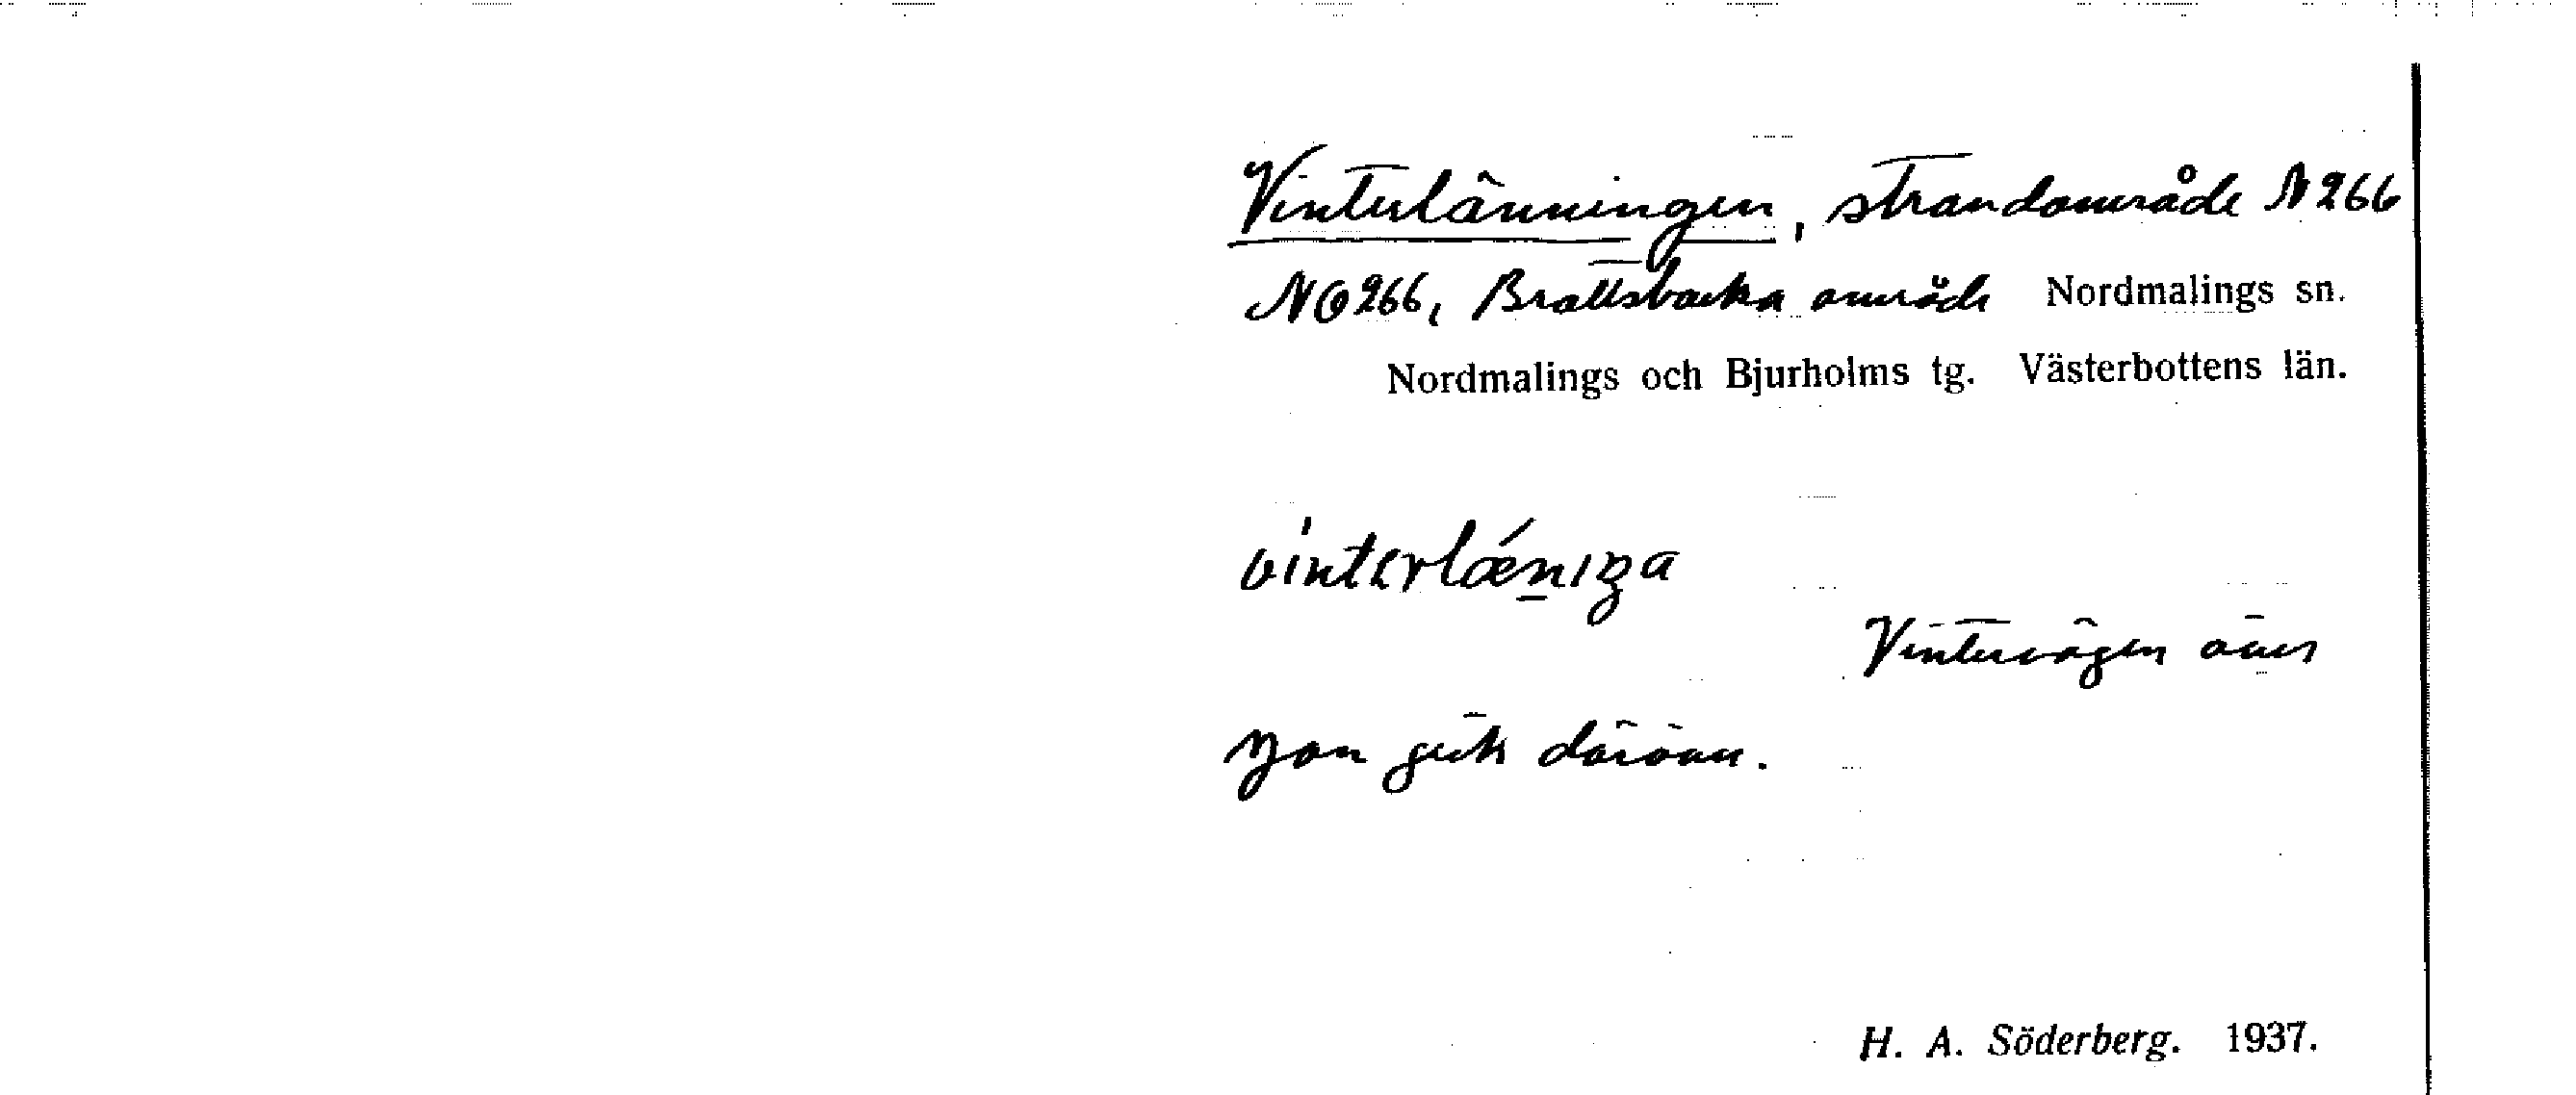 Vinterlänningen, strandområde N 266
NO 266, Brattsbacka område Nordmalings sn.
Nordmalings och Bjurholms tg. Västerbottens län.
Vintervägen över
sjön gick däröver.
H. A. Söderberg. 1937.